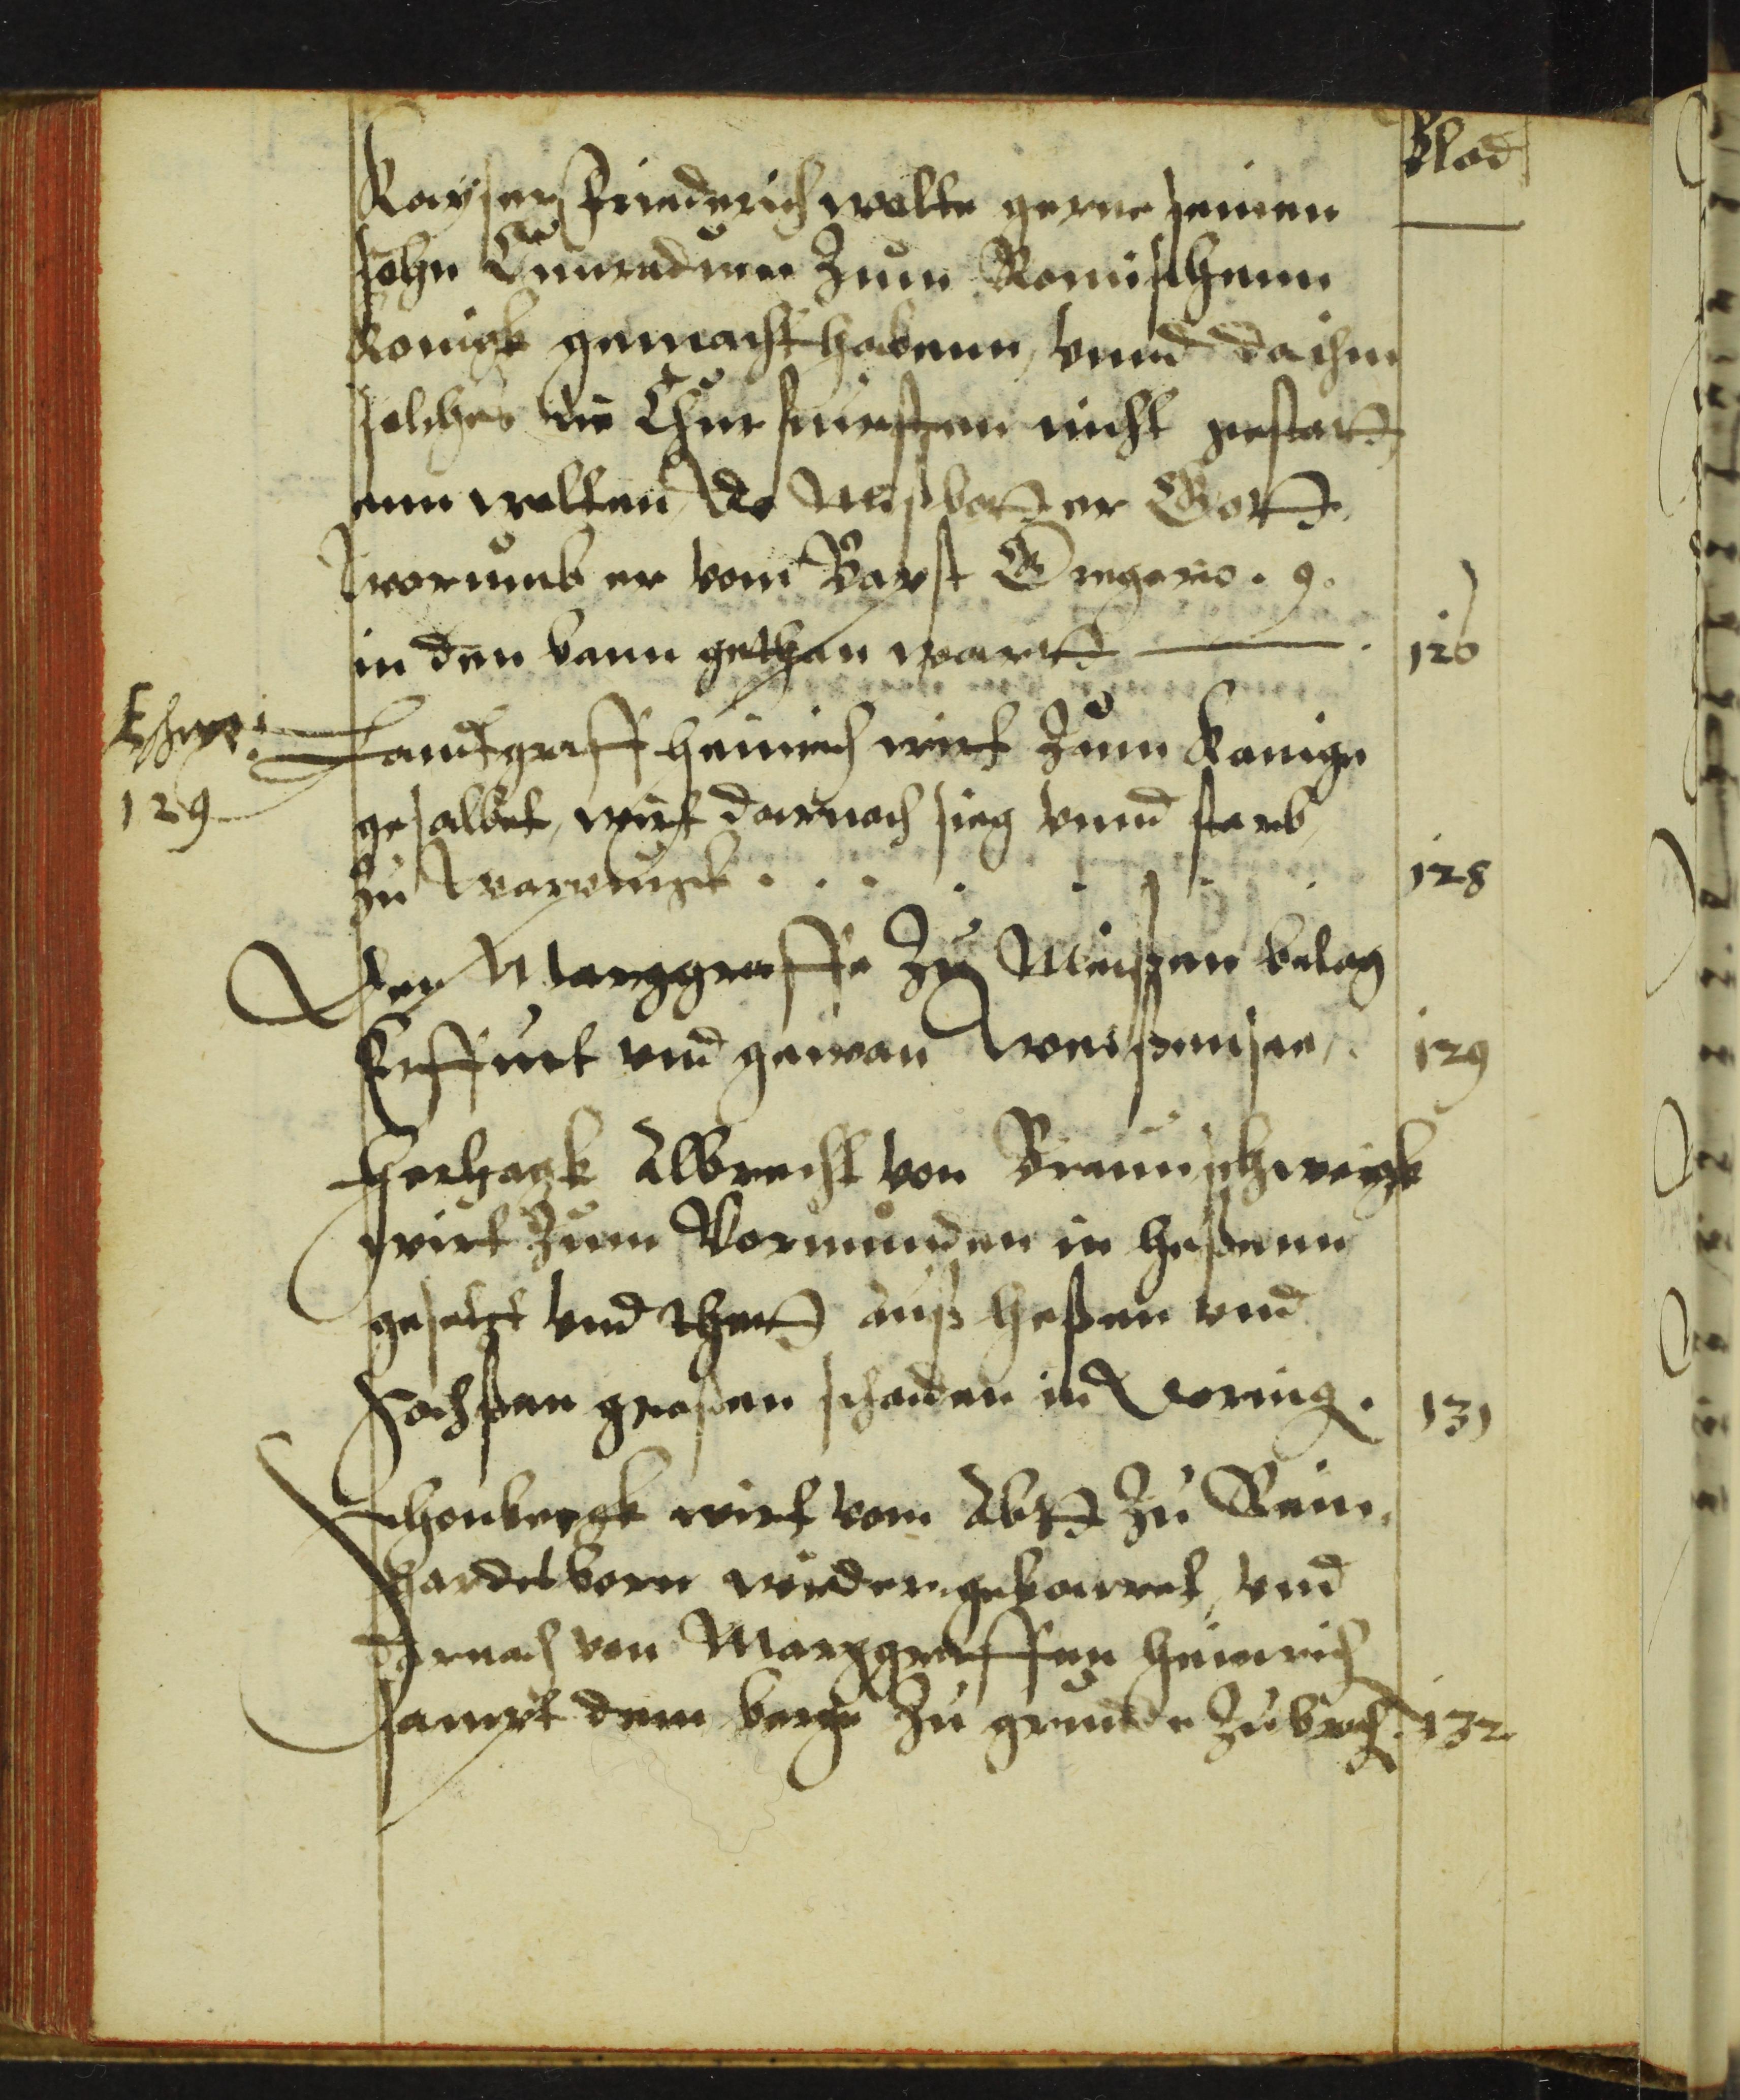 Blad
Kayser Friederich wolte gerne seinen
sohn Cunradum zum Romischenn
Konigk gemacht habenn, vnnd da ihm
solches die Churfursten nicht gestatt
enn wolten, do Mißbott er Gott
worumb er vom Bapst Gregorio . 9.
in den bann gethan wartt 126
129
Landtgraff Heinrich wirt zum Konige
gesalbet, wirt darnach sieg vnnd starb
zu Wartburgk . . . . . . . 128
Der Marggraffe zu Meißen belag
Erffurt vnd gewan Weißensee, 129
Hertzogk Albrecht von Braunschweigk
wirt zum Vormunden in Heßenn
gesetzt vnd thett auß Heßen vnd
Sachßen großen schaden in Doring. 131
Schonbergk wirt vom Abtt zu Rein
hardesborn widergebawet, vnd
darnach von Marggraffen Heinrich
sampt dem berge zu grunde zubroch. 132